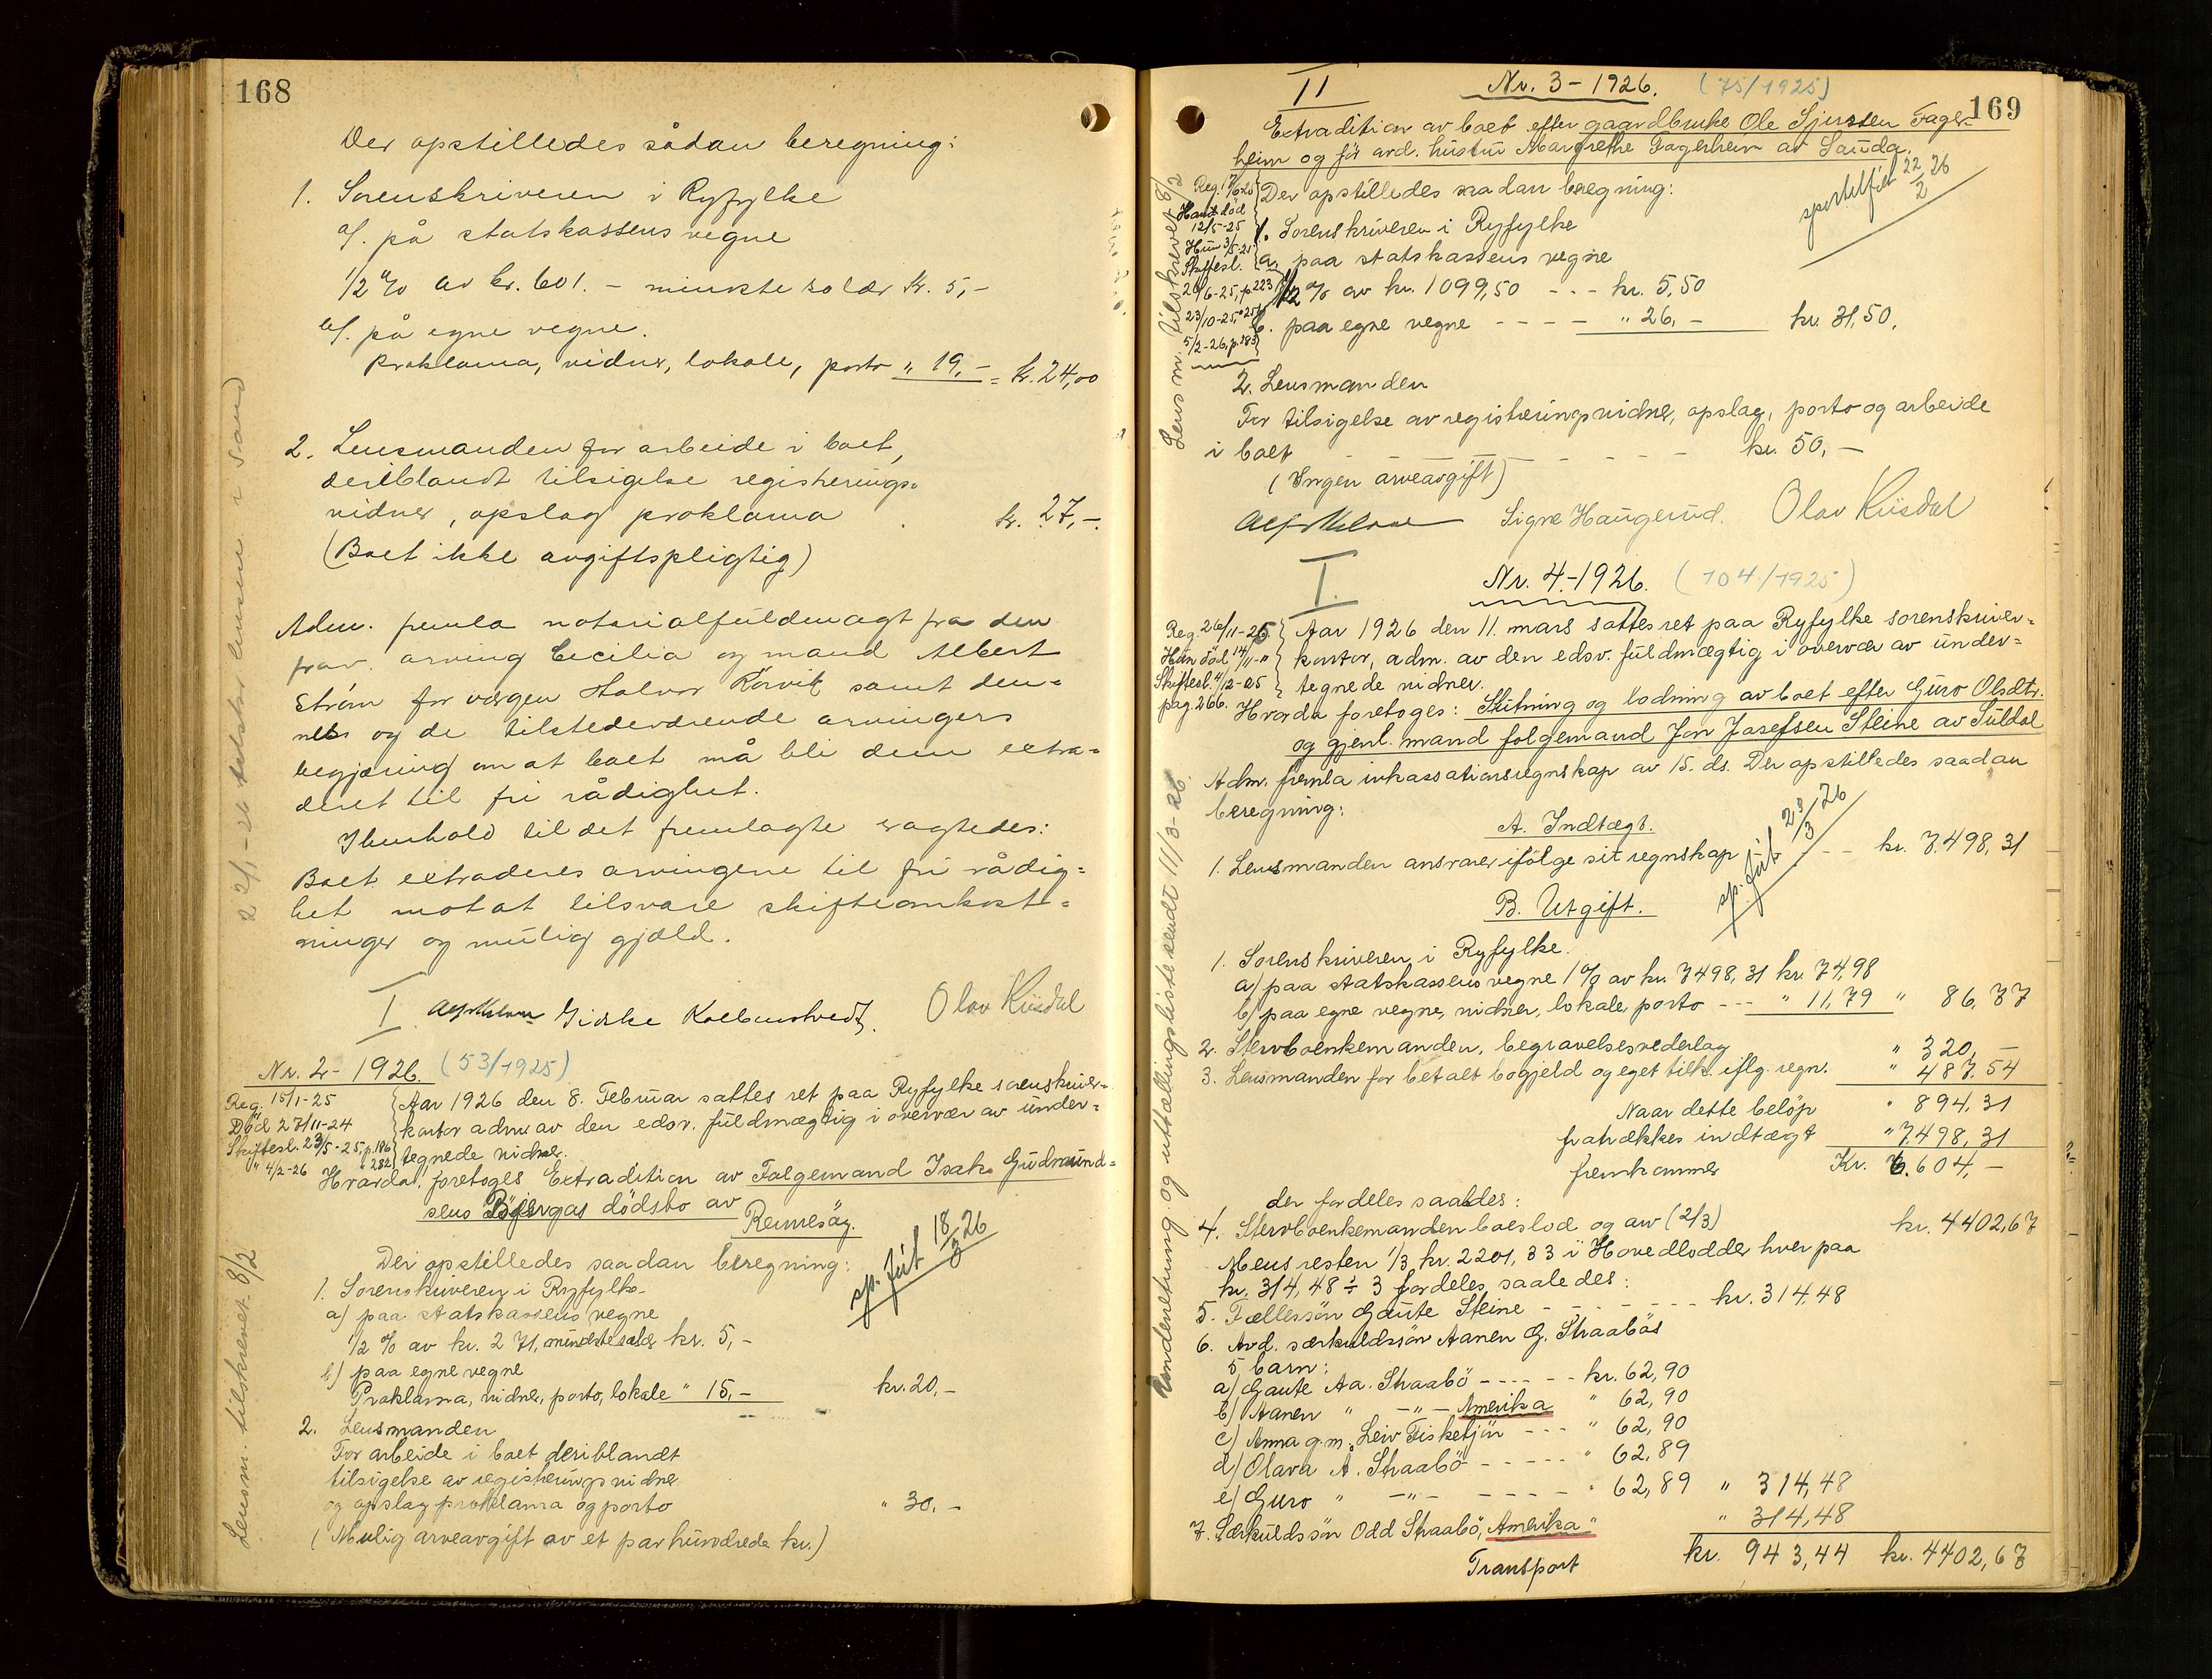 168
Der opstilledes sådan beregning:
1. Sorenskriveren i Ryfylke
a/. på statskassens vegne
1/2 % av kr. 601. – minste solær kr. 5,–
b/. på egne vegne.
Proklama, vidner, lokale, porto " 19,– = kr. 24,00
2. Lensmanden for arbeide i boet,
deriblandt tilsigelse registrerings-
vidner, opslag proklama kr. 27,–.
(Boet ikke avgiftspligtig)
Adm. fremla notarialfuldmagt fra den
frav. arving Cecilia og mand Albert
Strøm for værgen Halvor Rörvik samt den-
nes og de tilstedeværende arvingers
begjæring om at boet må bli dem extra-
deret til fri rådighet.
I henhold til det fremlagte vagtedes:
Boet extraderes arvingene til fri rådig-
het mot at tilsvare skifteomkost-
ninger og mulig gjæld.
I Giske Kolbenstvedt. Olav Riisdal
22/1-26 tilskr. lensm. i Sand
Nr. 2 - 1926. (53/1925)
Reg. 15/1-25
Död 27/11-24
Skiftesl. 23/5-25, p. 186
" 4/2-26 " 282
Aar 1926 den 8. Februar sattes ret paa Ryfylke sorenskriver-
kontor adm. av den edsv. fuldmægtig i overvær av under-
tegnede vidner.
Hvorda foretoges Extradition av Folgemand Isak Gudmund-
sens Bjergas dödsbo av
Rennesöy.
sp. ført 18/3 26
Der opstilledes saadan beregning:
1. Sorenskriveren i Ryfylke
a) paa statskassens vegne
1/2 % av kr. 271, mindste salær kr. 5,–
b) paa egne vegne
Proklama, vidner, porto, lokale " 15,– kr. 20,–
2. Lensmanden
For arbeide i boet deriblandt
tilsigelse av registreringsvidner
og opslag proklama og porto " 30,–
(Mulig arveavgift av et par hundrede kr.)
Lensm. tilskrevet 8/2
169
II Nr. 3 - 1926. (75/1925)
Extradition av boet efter gaardbruke Ole Sjursen Fager-
heim og før avd. hustru Margrethe Fagerheim av Sauda.
Der opstilledes saadan beregning:
Han död
12/5-25
Hun 3/5-21
Skiftesl.
20/6-25, p. 223
23/10-25, " 256
5/2-26, p. 283
Lensm. tilskrevet 8/2
sportelført 22/2 26
1. Sorenskriveren i Ryfylke
a. paa statskassens vegne
1/2 % av kr. 1099,50 - - - kr. 5,50
b. paa egne vegne - - - - " 26,– kr. 31,50.
2. Lensmanden
For tilsigelse av registreringsvidner, opslag, porto og arbeide
i boet - - - - - - kr. 50,–
(Ingen arveavgift)
Signe Haugerud. Olav Riisdal
I. Nr. 4 - 1926. (104/1925)
Reg. 26/11-25
Hun död 14/11-"
Skiftesl. 4/12-25
pag. 266.
Aar 1926 den 11. mars sattes ret paa Ryfylke sorenskriver-
kontor, adm. av den edsv. fuldmægtig i overvær av under-
tegnede vidner.
Hvorda foretoges: Slutning og lodning av boet efter Guro Olsdtr.
og gjenl. mand folgemand Jon Josefsen Steine av Suldal
Adm. fremla inkassationsregnskap av 15. ds. Der opstilledes saadan
beregning:
A. Indtægt.
1. Lensmanden ansvarer ifölge sit regnskap - - kr. 7.498,31
sp. ført 23/3 26
B. Utgift.
1. Sorenskriveren i Ryfylke.
a) paa statskassens vegne 1 % av kr. 7498,31 kr. 74,98
b) paa egne vegne, vidner, lokale, porto - - - " 11,79 " 86,77
2. Stervboenkemanden, begravelsesvederlag " 320,–
3. Lensmanden for betalt bogjeld og eget tilk. iflg. regn. " 487.54
Naar dette belöp " 894,31
fratrækkes indtægt " 7.498,31
fremkommer Kr. 6.604,–
der fordeles saaledes:
4. Stervboenkemanden boeslod og arv (2/3) kr. 4402,67
Mens resten 1/3 kr. 2201,33 i 7 Hovedlodder hver paa
kr. 314,48 ÷ 3 fordeles saaledes:
5. Fællessön Gaute Steine - - - - - - kr. 314,48
6. Avd. særkuldssön Aanen G. Straabös
5 barn:
a) Gaute Aa. Straabö - - - - - kr. 62,90
b) Aanen " - " - Amerika " 62,90
c) Anna g.m. Leiv Fisketjön - - - " 62,90
d) Olava A. Straabö - - - - - " 62,89
e) Guro " - " - - - - - " 62,89 " 314,48
7. Særkuldssön Odd Straabö, Amerika " " 314,48
Transport kr. 943,44 kr. 4402,67
Randmeltning og uttællingsliste sendt 11/3-26.